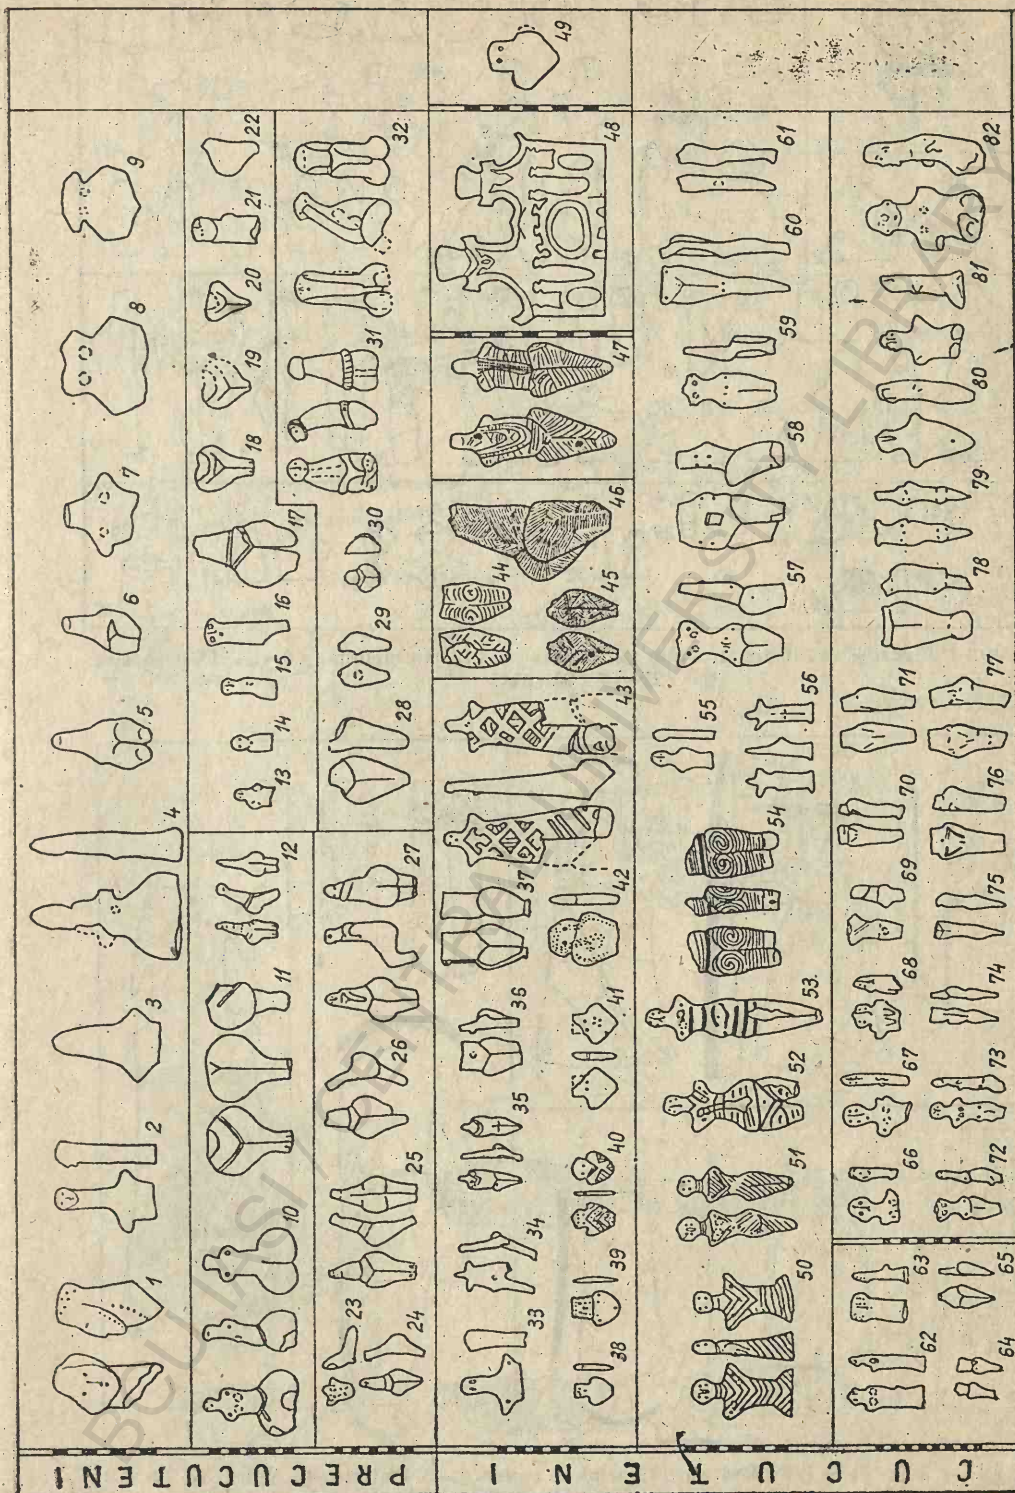 PRECUCUTENI
1 2 3 4 5 6 7 8 9
10 11 12 13 14 15 16 17 18 19 20 21 22
23 24 25 26 27 28 29 30 31 32
CUCUTENI
33 34 35 36 37
38 39 40 41 42 43 44 45 46 47 48 49
50 51 52 53 54 55 56 57 58 59 60 61
62 63 64 65
66 67 68 69 70 71
72 73 74 75 76 77 78 79 80 81 82
BCU IASI / CENTRAL UNIVERSITY LIBRARY